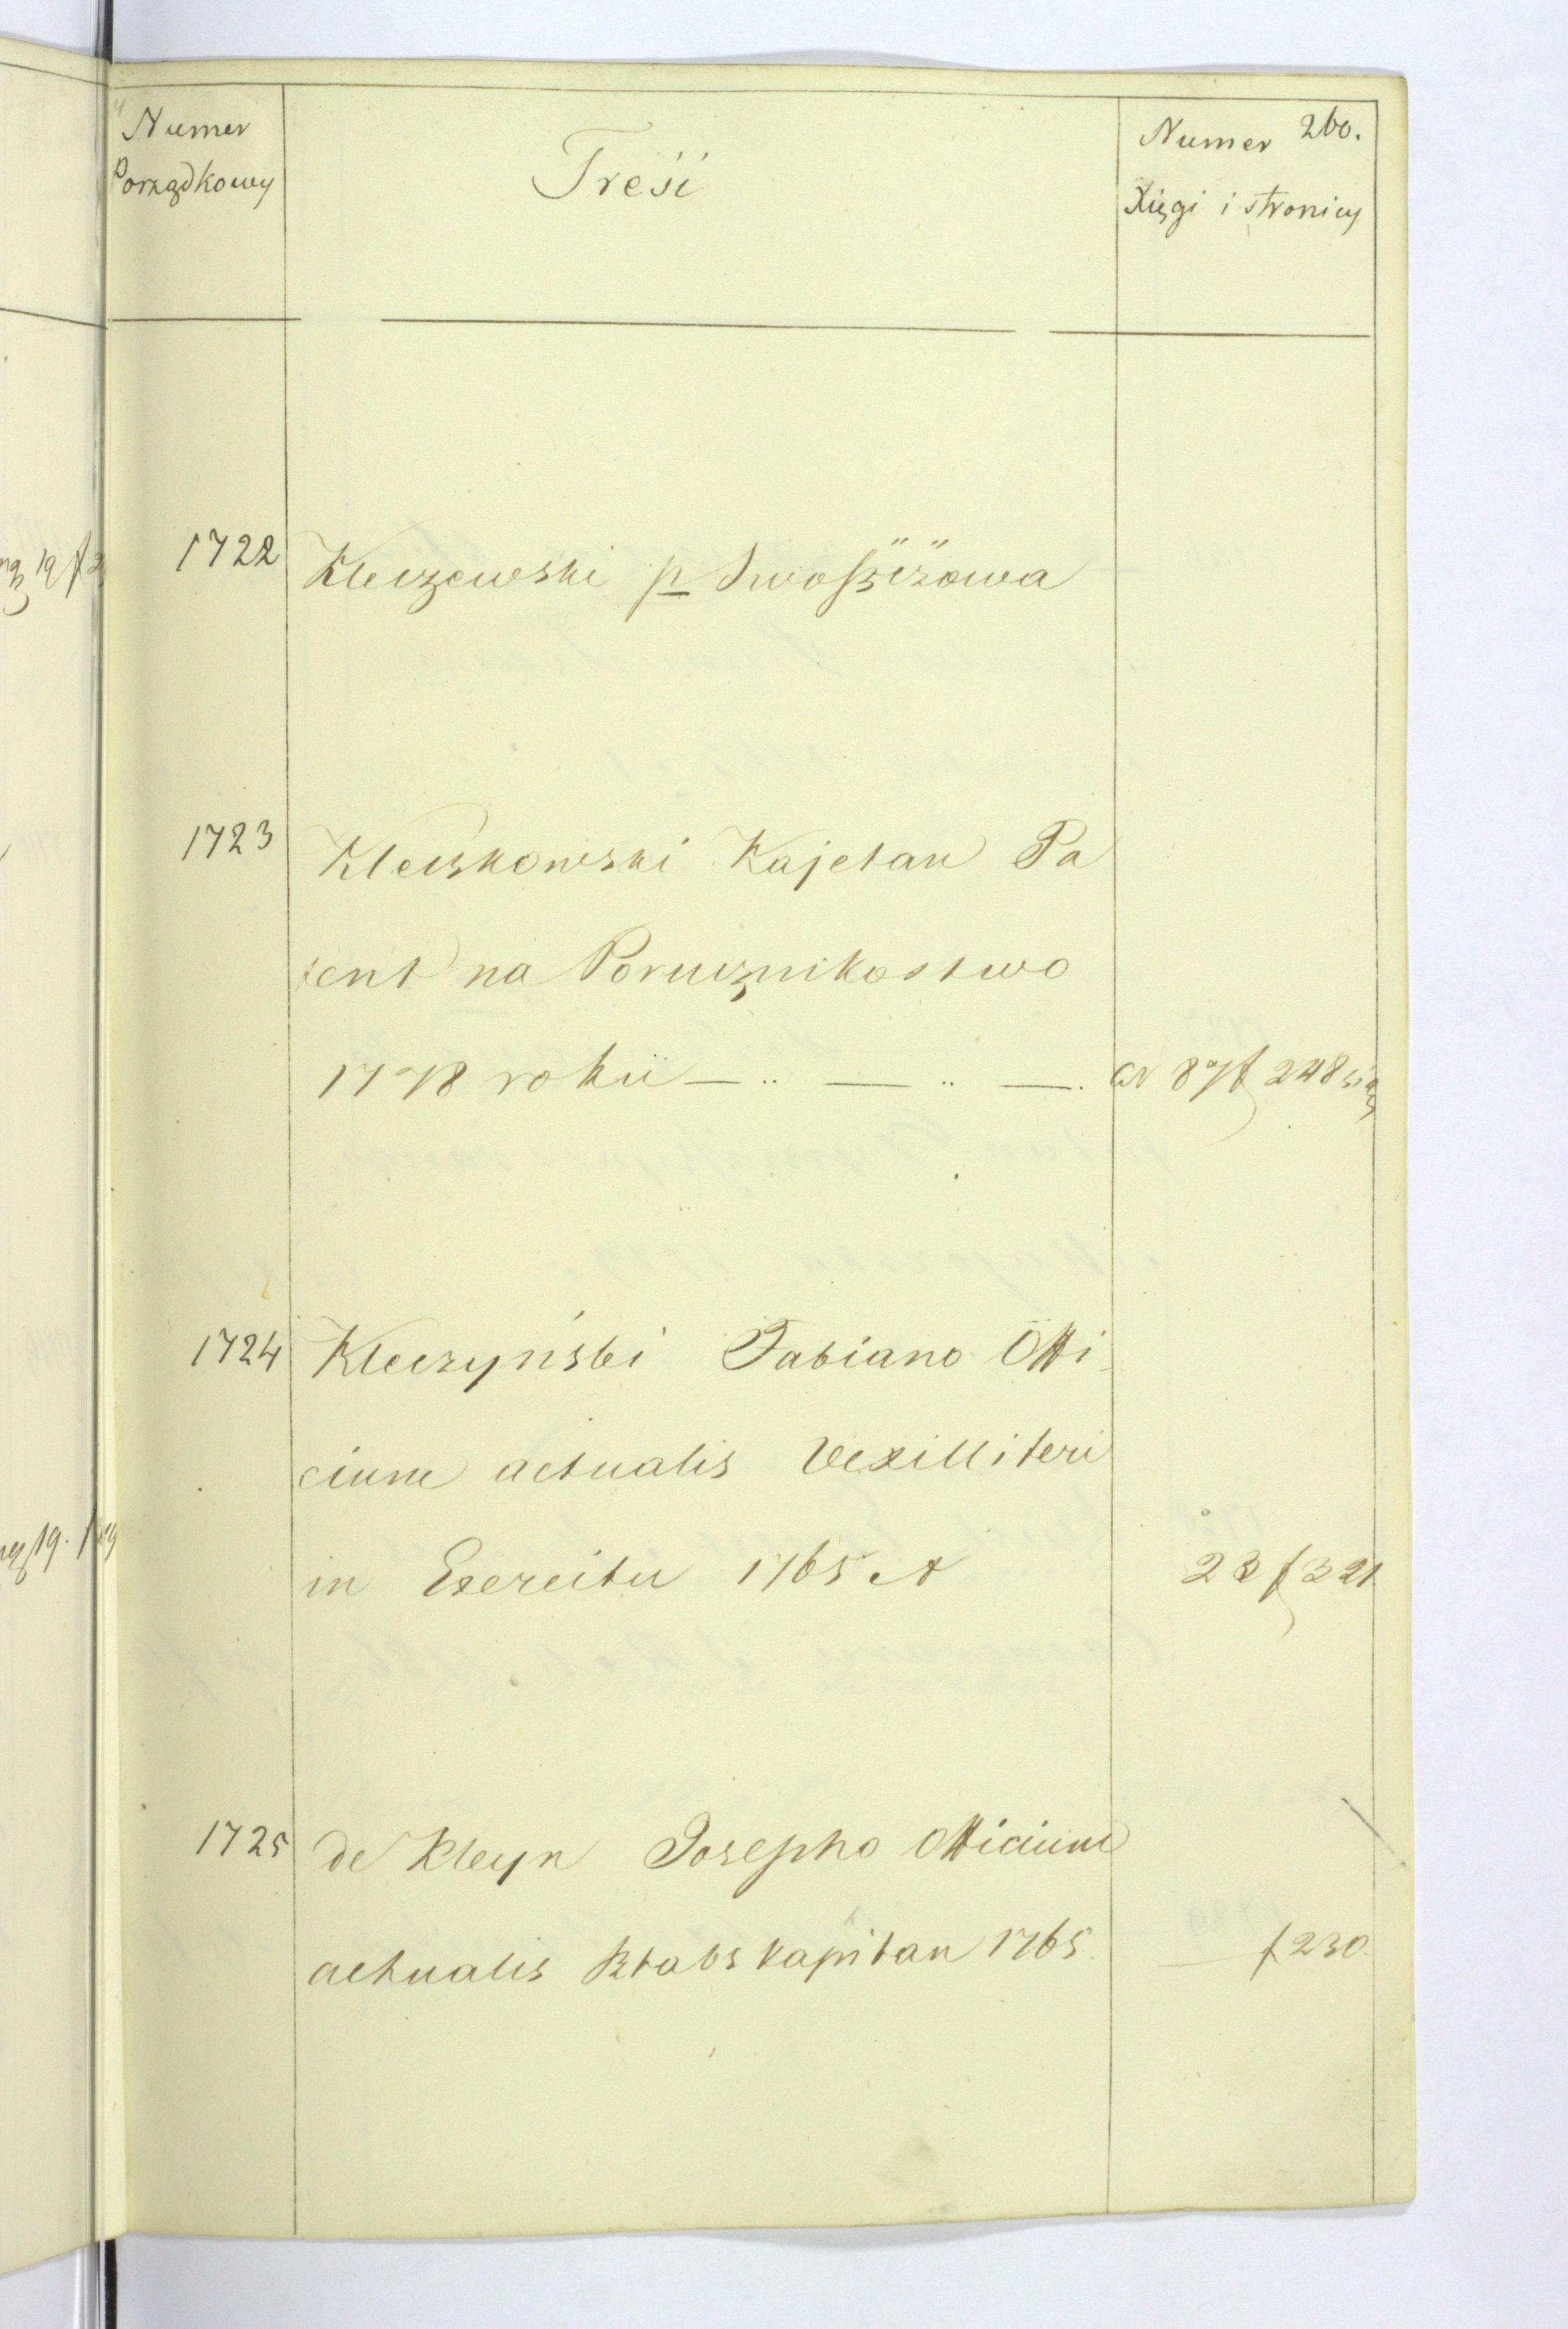 260.
Numer
Porządkowy
Treść
Numer
Xięgi i stronicy
1722 Kleczewski p Swoszczowa
1723 Kleczkowski Kajetan Pa
tent na Porucznikostwo
1778 roku — .. — .. — . 87 f 248
1724 Kleczyński Fabiano Offi-
cium actualis Vexilliferi
in Exercitu 1765 23 f 321
1725 de Kleyn Josepho Officium
actualis Sztabskapitan 1765. f 230.